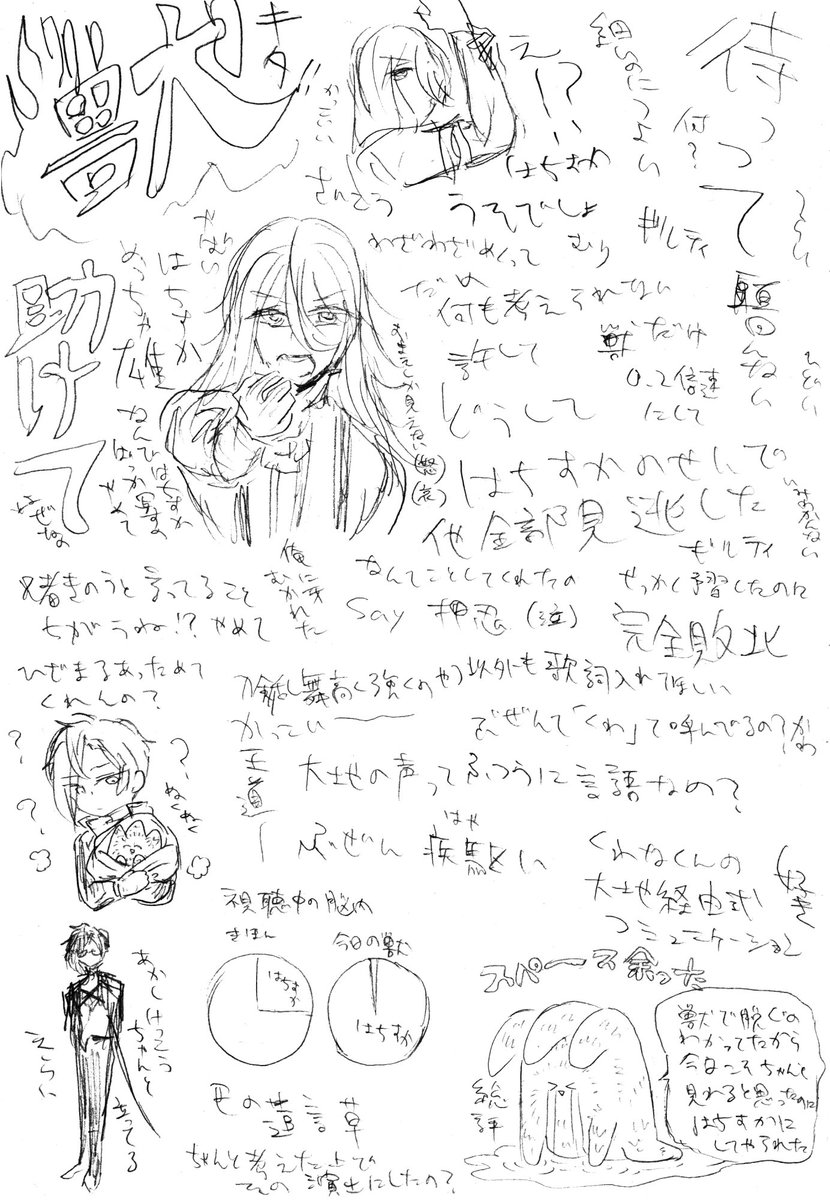 待って
願んない
ひどい
付?
細いのにつよい
え!?
はちすか
かっこいい
さいこう
キタ
獣
うそでしょ
むり
ギルティ
わざわざめくって
だめ
何も考えられない
許して
どうして
獣だけ
0.2倍速
にして
助けて
やばい
はちすか
めっちゃ雄
なんではちすか
ばっか写すの
やめて
なぜなの
おまえしか見えない(怒)
(泣)
はちすかのせいで
他全部見逃した
いみわかんない
ギルティ
なんてことしてくれたの
せっかく予習したのに
Say 押忍(泣)
完全敗北
俺に
むかれた
兄者きのうと言ってること
ちがうね!? やめて
ひざまるあったためて
くれんの?
乱舞高く強くのやつ以外も歌詞入れてほしい
かっこいー
王道ー
ぶぜんて「くわ」て呼んでるの?かわ
大地の声ってふつうに言語なの?
ぶぜん 疾駆い
はや
くわなくんの
大地経由式
コミュニケーション
好き
?
?
?
?
ぬくぬく
視聴中の脳内
きほん
はちすか
今日の獣
はちすか
あかしけっこう
ちゃんと
立ってる
えらい
この蓮言草
ちゃんと考えた上で
この演出にしたの?
スペース余った
総評
獣で脱ぐの
わかってたから
今日こそちゃんと
見れると思ったのに
はちすかに
してやられた